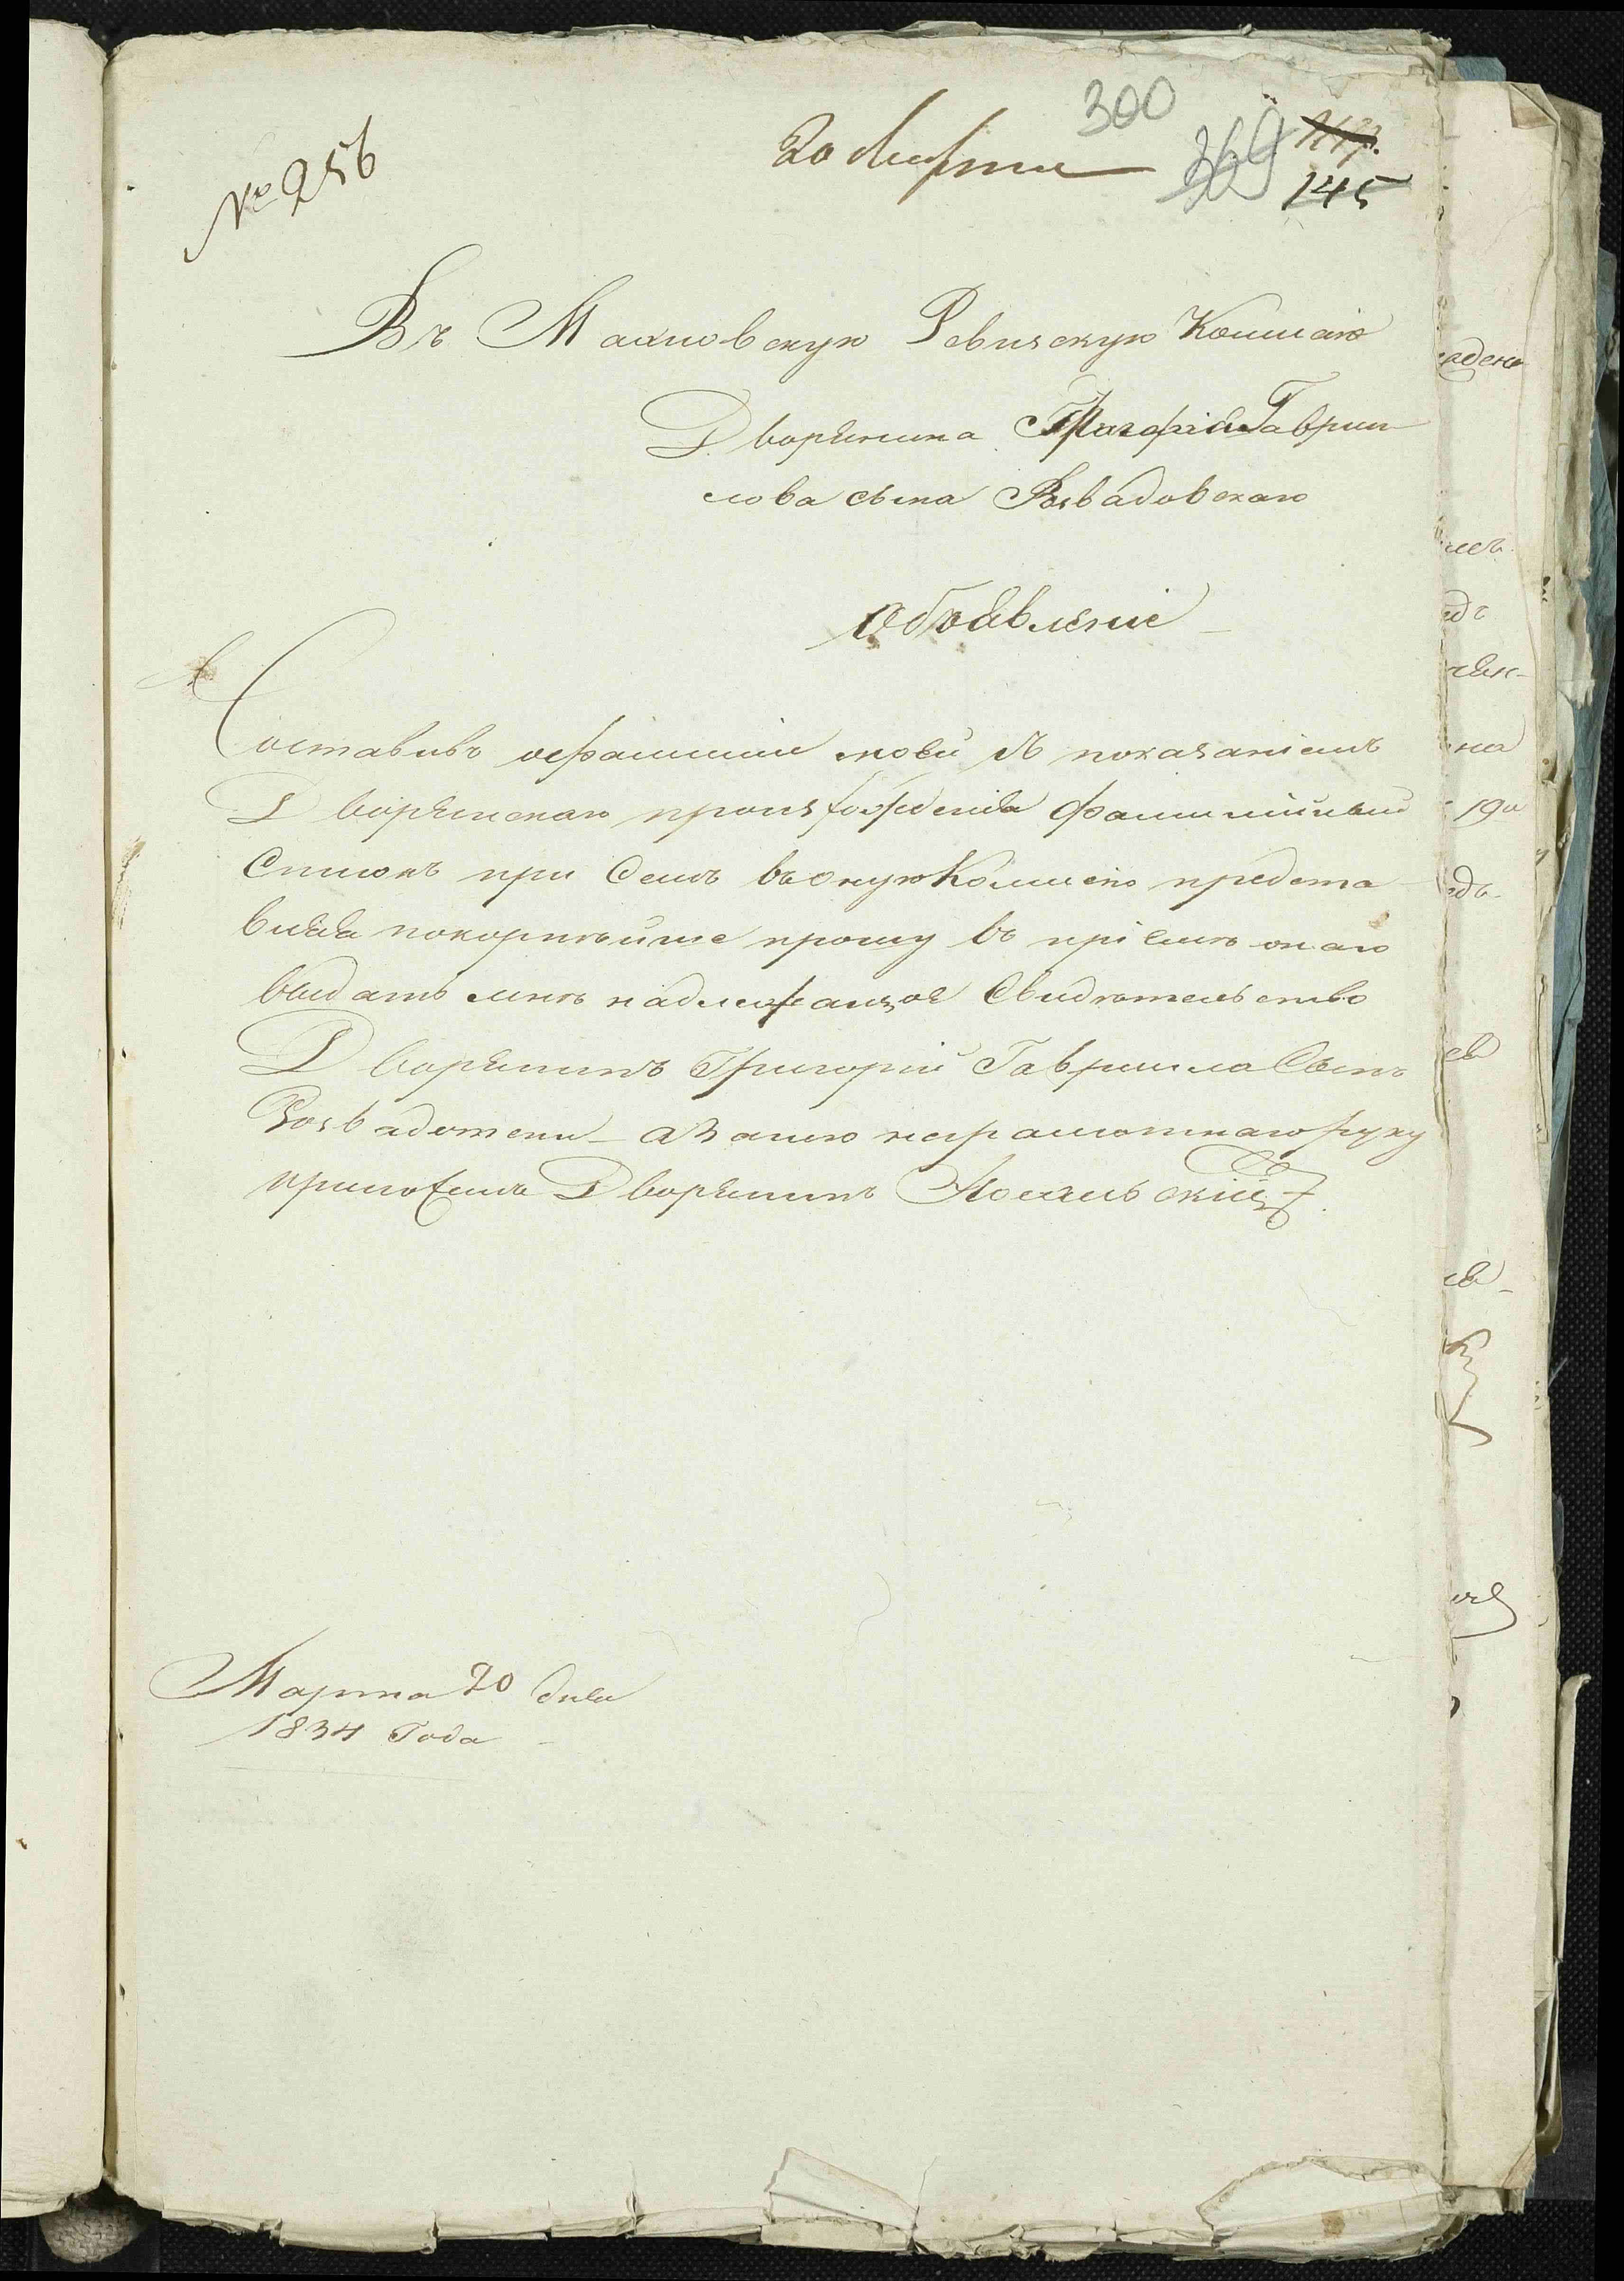 № 256
20 Марта
300
369
145
Въ Махновскую Ревизскую Комисію
Дворянина Григорія Гаврии
лова сына Розвадовскаго
Объявленіе
Составивъ офамиліи моей съ показаніемъ
Дворянскаго происхожденія фамилійный
Списокъ при Семъ въ оную Комисію предста
вляя покорнѣйше прошу въ пріемѣ онаго
выдать мнѣ надлежащое Свидѣтельство
Дворянинъ Григорій Гавриила Сынъ
Розвадовски а За него неграмотнаго руку
приложилъ Дворянинъ
Марта 20 дня
1834 Года